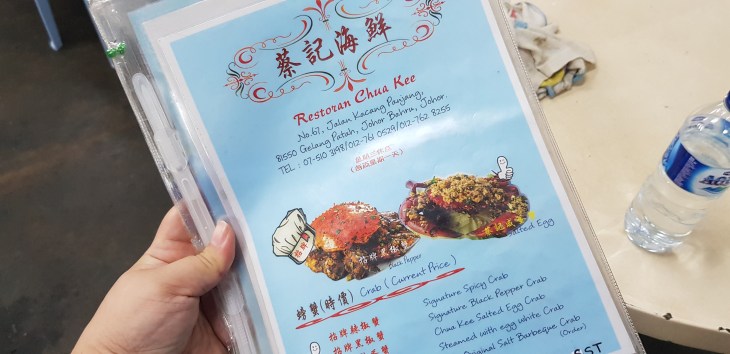 蔡記海鮮
Restoran Chua Kee
No.67, Jalan Kacang Panjang,
81550 Gelang Patah, Johor Bahru, Johor.
TEL : 07-510 3198/012-761 0529/012-762 8255
招牌黑椒蟹
Black Pepper
Salted Egg
螃蟹(時價) Crab (Current Price)
招牌辣椒蟹
Signature Spicy Crab
招牌黑椒蟹
Signature Black Pepper Crab
Chua Kee Salted Egg Crab
Steamed with egg white Crab
Original Salt Barbeque Crab
(Order)
SST